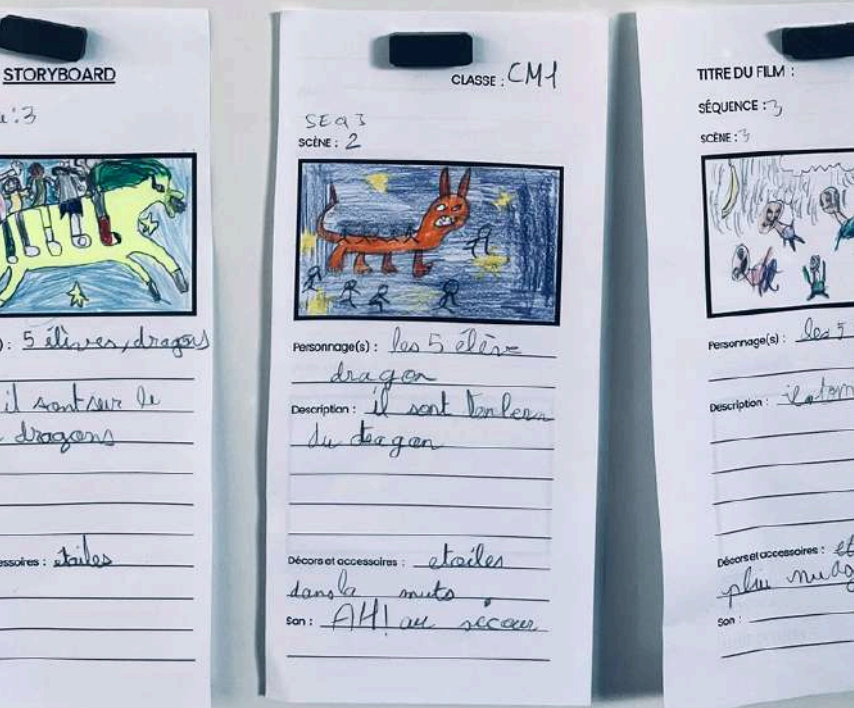 STORYBOARD
:3
: 5 élèves, dragons
il sont sur le
dragons
essoires : étoiles
CLASSE : CM1
SEQ 3
SCÈNE : 2
Personnage(s) : les 5 élève
dragon
Description : il sont
du dragon
Décors et accessoires : etoiles
dans la nuits
Son : AH! au sécour
TITRE DU FILM :
SÉQUENCE : 3
SCÈNE : 3
Personnage(s) : les 5
Description :
Décors et accessoires : et
pluie nuag
Son :